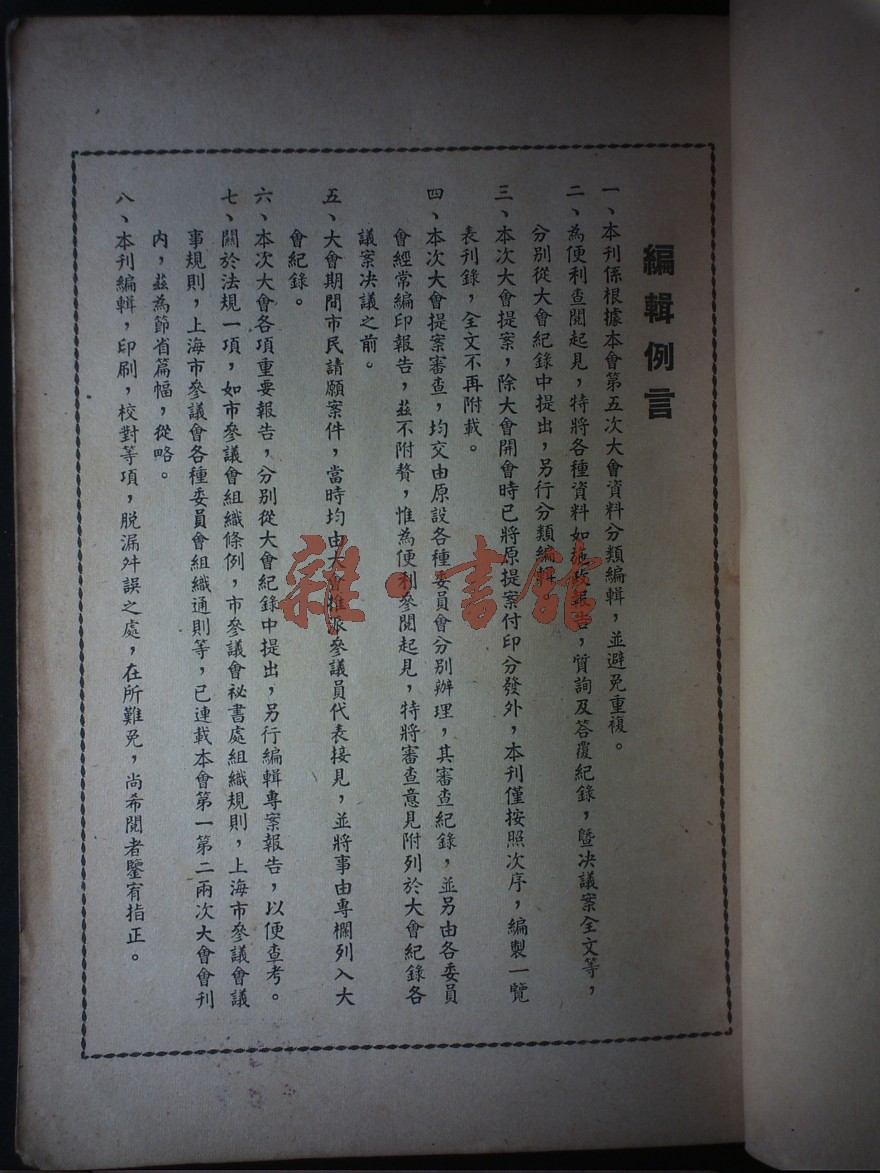 編輯例言
一、本刊係根據本會第五次大會資料分類編輯，並避免重複。
二、為便利查閱起見，特將各種資料如施政報告，質詢及答覆紀錄，暨決議案全文等，
分別從大會紀錄中提出，另行分類編輯
三、本次大會提案，除大會開會時已將原提案付印分發外，本刊僅按照次序，編製一覽
表刊錄，全文不再附載。
四、本次大會提案審查，均交由原設各種委員會分別辦理，其審查紀錄，並另由各委員
會經常編印報告，茲不附贅，惟為便利參閱起見，特將審查意見附列於大會紀錄各
議案决議之前。
五、大會期間市民請願案件，當時均由大會推派參議員代表接見，並將事由專欄列入大
會紀錄。
六、本次大會各項重要報告，分別從大會紀錄中提出，另行編輯專案報告，以便查考。
七、關於法規一項，如市參議會組織條例，市參議會祕書處組織規則，上海市參議會議
事規則，上海市參議會各種委員會組織通則等，已連載本會第一第二兩次大會會刊
內，茲為節省篇幅，從略。
八、本刊編輯，印刷，校對等項，脫漏舛誤之處，在所難免，尚希閱者鑒宥指正。
雜·書館